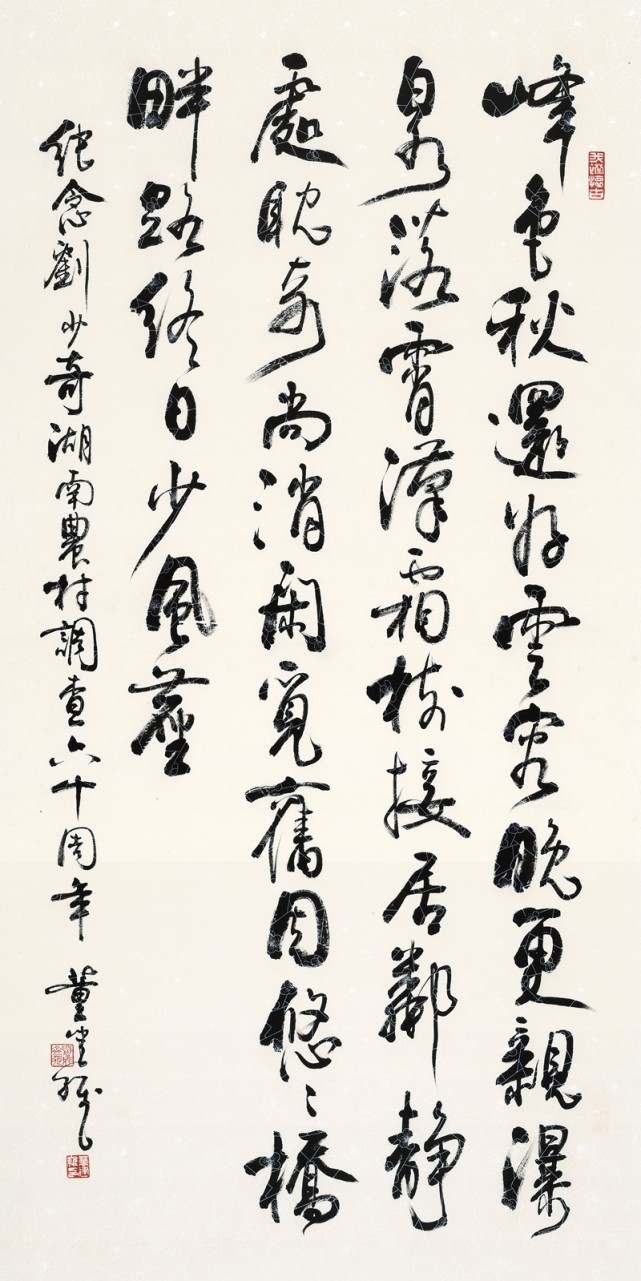 峰色秋還好雲容晚更親瀑
泉落霄漢霜樹接居鄰靜
處耽奇尚消閑覓舊因悠〻橋
畔路終日少風塵
紀念劉少奇湖南農村調查六十周年 董